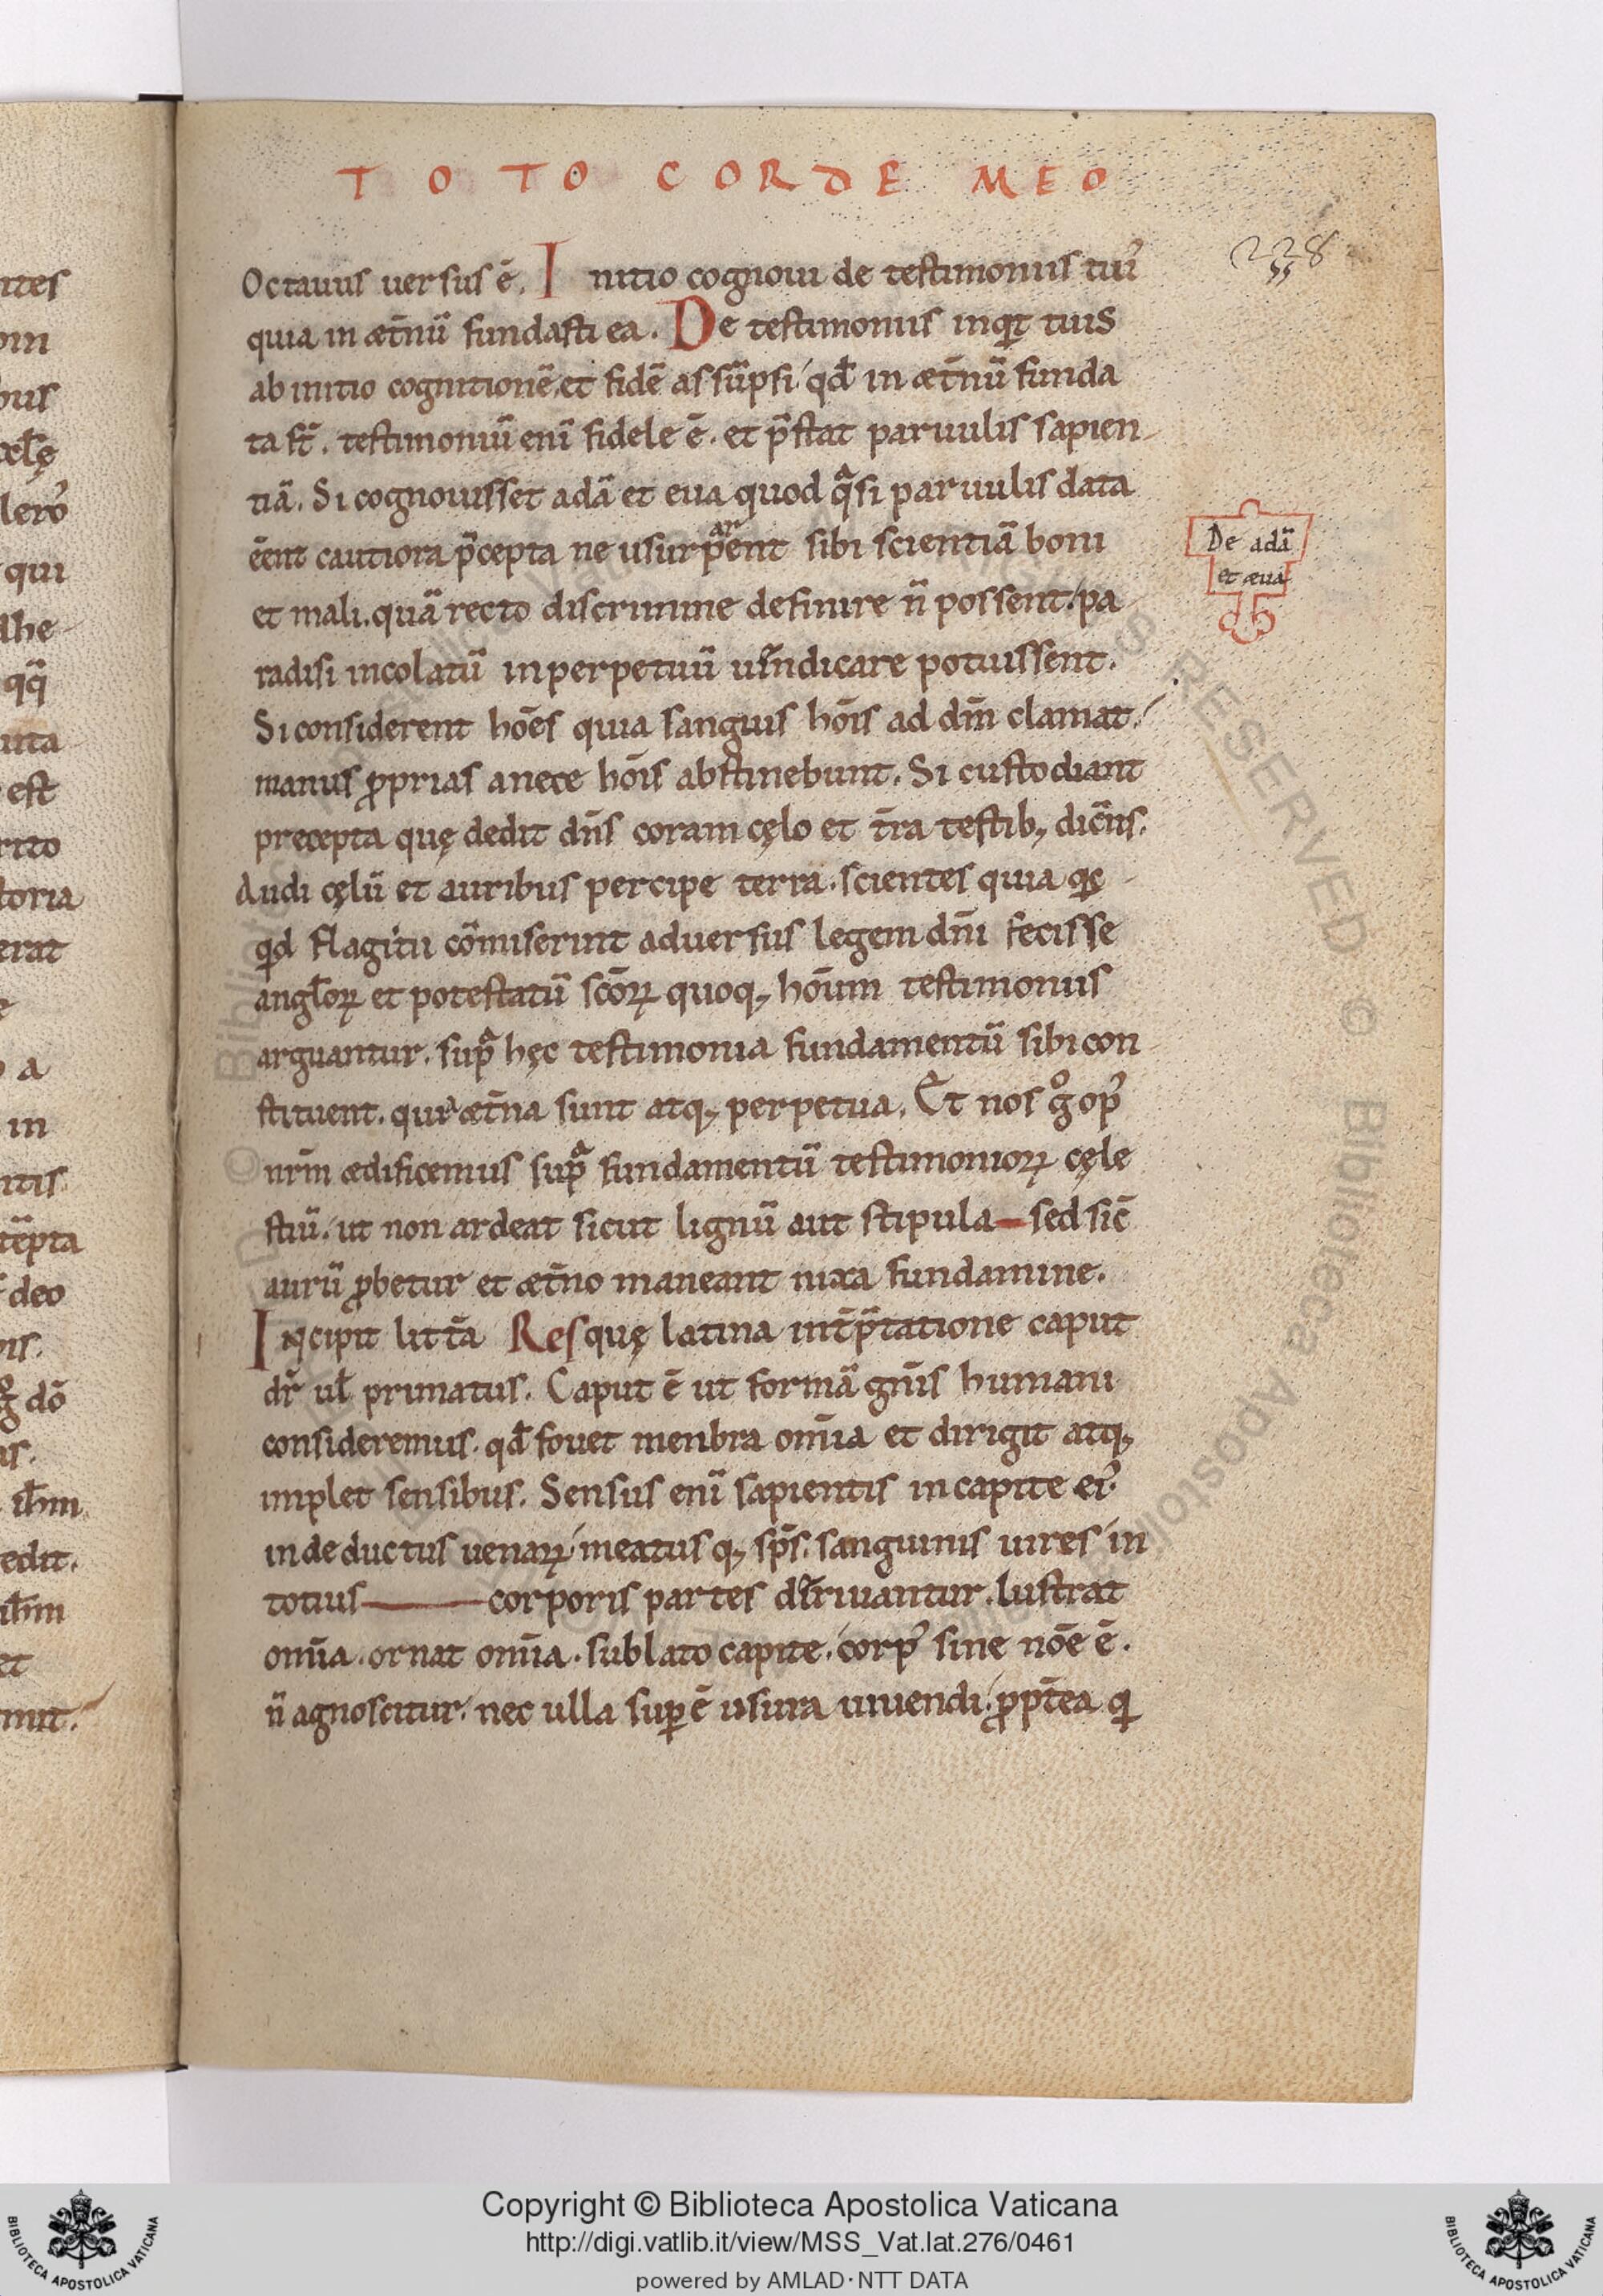 TOTO CORDE MEO
228
Octauus uersus ē. Initio cognoui de testimoniis tuis᾽
quia in æt̄nū fundasti ea. De testimoniis inqͥt tuis
ab initio cognitionē et fidē assūpsi qđ in æt̄nū funda
ta st̄. testimoniū eni̅ fidele ē. et p̄stat paruulis sapien
tiā. Si cognouisset adā et eua quod qͣsi paruulis data
ēent cautiora p̄cepta ne usurparent sibi scientiā boni
et mali. quā recto discrimine definire n̄ possent. pa
radisi incolatū in perpetuū uendicare potuissent.
Si considerent hōes quia sanguis hōis ad dm̄ clamat.
manus ꝓprias a nece hōis abstinebunt. Si custodiant
precepta quę dedit dn̄s coram cęlo et t̄ra testib; dicēns.
Audi cęlū et auribus percipe terra. scientes quia qͥc
qͥd flagitii cōmiserint aduersus legem dn̄i fecisse
angl̄oꝝ et potestatū sc̄oꝝ quoq; hōum testimoniis
arguantur. supͣ hęc testimonia fundamentū sibi con
stituent. quia æt̄na sunt atq; perpetua. Et nos gͦ op᾽
nrm̄ ædificemus supͣ fundamentū testimonioꝝ cęle
stiū. ut non ardeat sicut lignū aut stipula sed sic̄
aurū ꝓbetur et æt̄no maneant nixa fundamine.
Incipit litt̄a Res quę latina int̄p̄tatione caput
dr̄ ul̄ primatus. Caput ē ut formā gn̄is humani
consideremus. qđ fouet menbra om̄ia et dirigit atq;
implet sensibus. Sensus eni̅ sapientis in capite ei᾽.
inde ductus uenaꝝ meatusq; sp̄s. sanguinis uires in
totius corporis partes diriuantur. lustrat
om̄ia. ornat om̄ia. sublato capite. corp᾽ sine nōe ē.
n̄ agnoscitur. nec ulla suꝑē usura uiuendi. ꝓpt̄ea qͥ
De adā
et æua